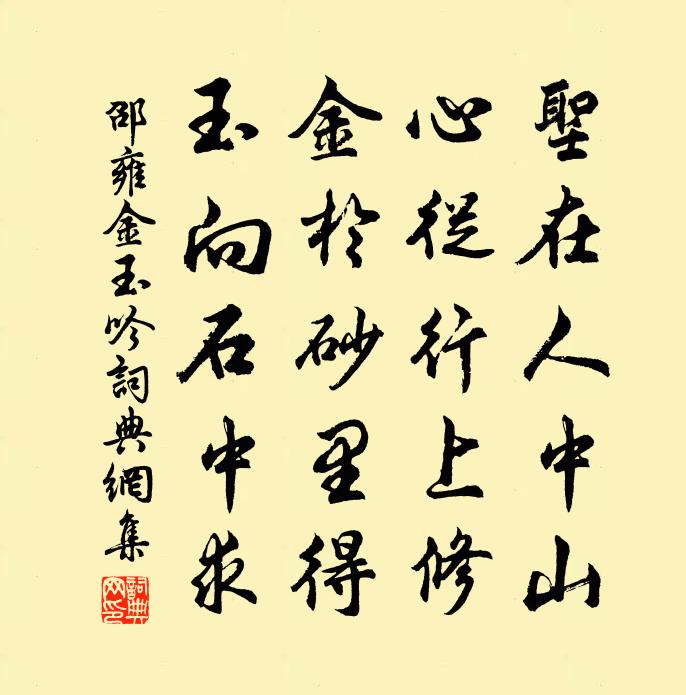 聖在人中山
心從行上修
金於砂里得
玉向石中求
邵雍金玉吟詞典網集
詞典網印